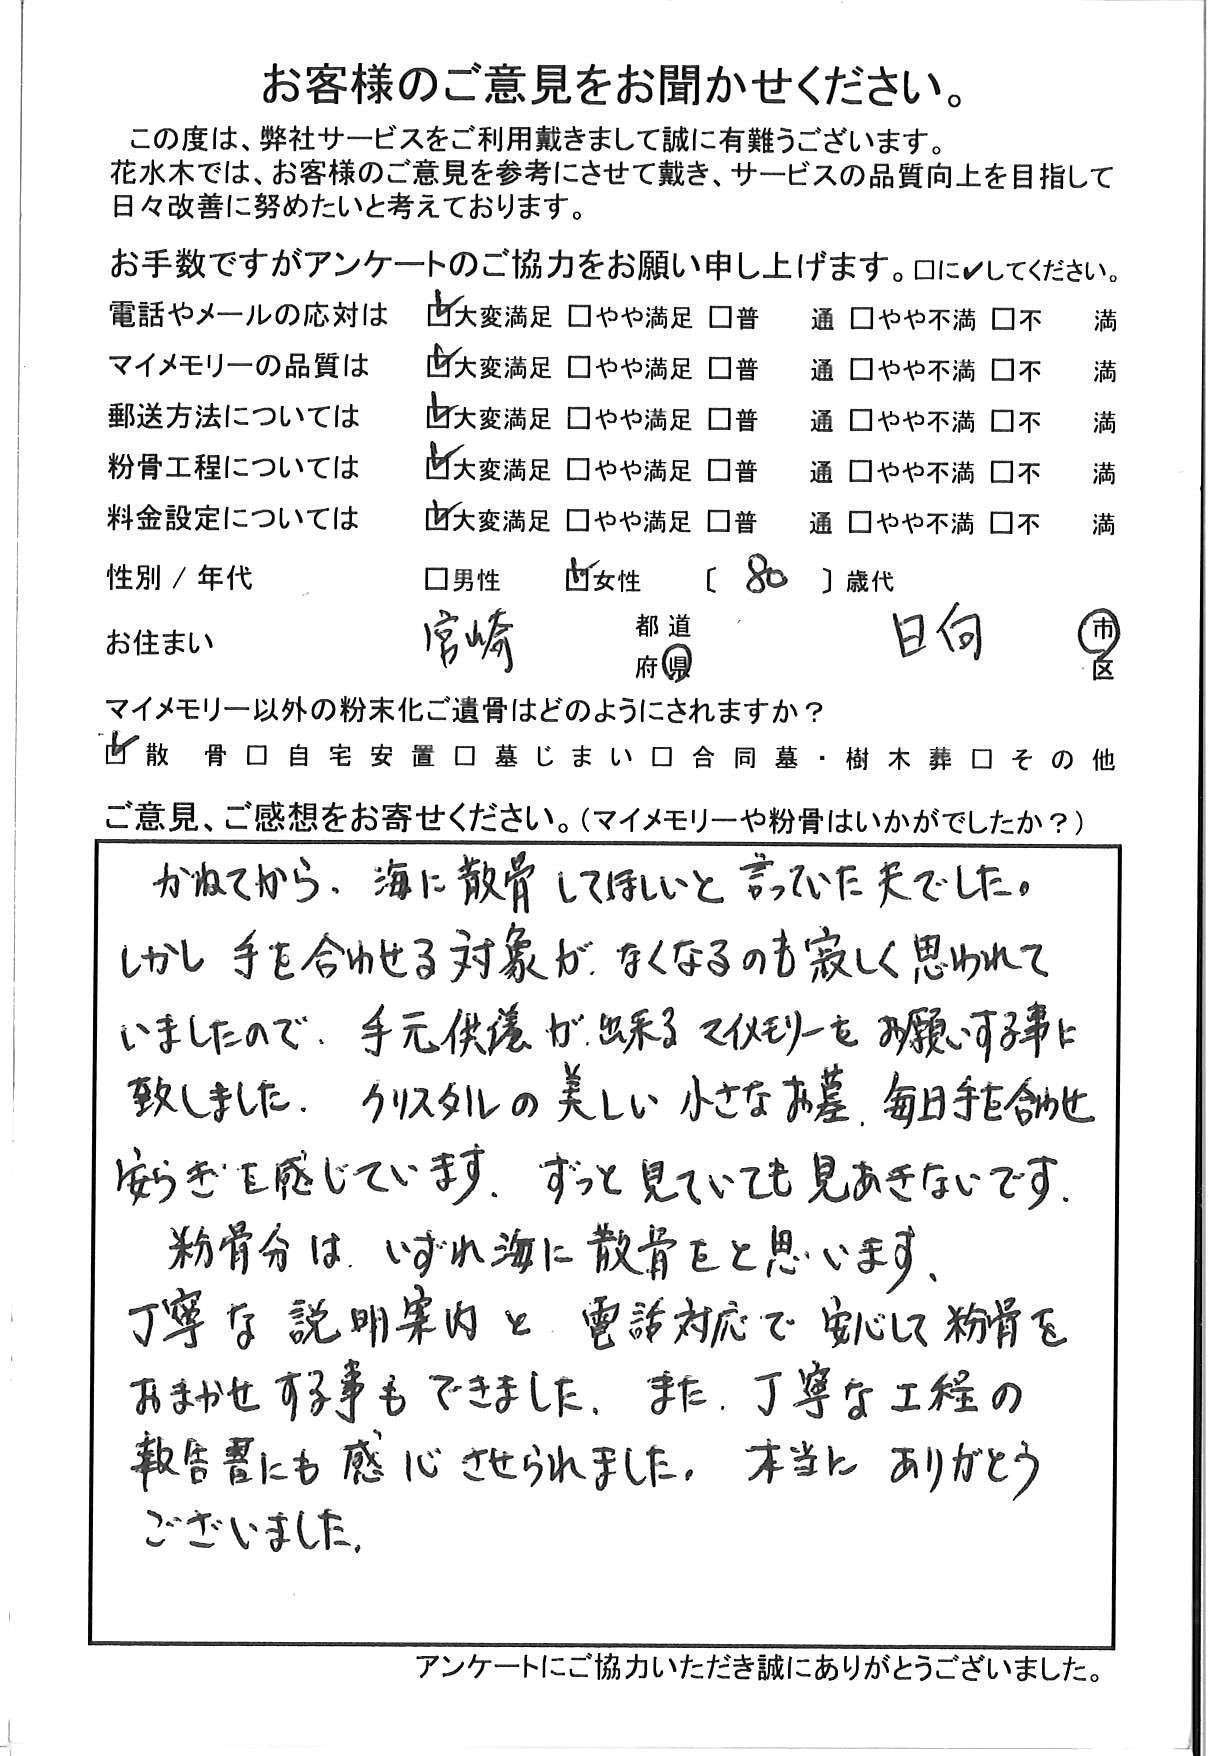 お客様のご意見をお聞かせください。
この度は、弊社サービスをご利用戴きまして誠に有難うございます。
花水木では、お客様のご意見を参考にさせて戴き、サービスの品質向上を目指して
日々改善に努めたいと考えております。
お手数ですがアンケートのご協力をお願い申し上げます。□に✔してください。
電話やメールの応対は ☑大変満足 □やや満足 □普 通 □やや不満 □不 満
マイメモリーの品質は ☑大変満足 □やや満足 □普 通 □やや不満 □不 満
郵送方法については ☑大変満足 □やや満足 □普 通 □やや不満 □不 満
粉骨工程については ☑大変満足 □やや満足 □普 通 □やや不満 □不 満
料金設定については ☑大変満足 □やや満足 □普 通 □やや不満 □不 満
性別 / 年代 □男性 ☑女性 〔 80 〕歳代
お住まい 宮崎 都道府県 日向 市区
マイメモリー以外の粉末化ご遺骨はどのようにされますか？
☑散 骨□自宅安置□墓じまい□合同墓・樹木葬□その他
ご意見、ご感想をお寄せください。（マイメモリーや粉骨はいかがでしたか？）
かねてから、海に散骨してほしいと言っていた夫でした。
しかし手を合わせる対象が、なくなるのも寂しく思われて
いましたので、手元供養が出来るマイメモリーをお願いする事に
致しました。クリスタルの美しい小さなお墓、毎日手を合わせ
安らぎを感じています。ずっと見ていても見あきないです。
粉骨分は、いずれ海に散骨をと思います。
丁寧な説明案内と電話対応で安心して粉骨を
おまかせする事もできました。また、丁寧な工程の
報告書にも感心させられました。本当にありがとう
ございました。
アンケートにご協力いただき誠にありがとうございました。